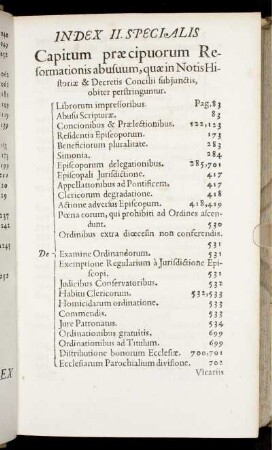 INDEX II. SPECIALIS
Capitum præcipuorum Re-
formationis abusuum, quæ in Notis Hi-
storiæ & Decretis Concilii subjunctis,
obiter perstringuntur.
Librorum impressoribus. Pag. 83
Abusu Scripturæ, 83
Concionibus & Prælectionibus. 122,123
Residentia Episcoporum. 173
Beneficiorum pluralitate. 283
Simonia. 284
Episcoporum delegationibus. 285,701
Episcopali Jurisdictione. 417
Appellationibus ad Pontificem. 417
Clericorum degradatione. 418
Actione adversus Episcopum. 418,419
Pœna eorum, qui prohibiti ad Ordines ascen-
dunt. 530
Ordinibus extra diœcesin non conferendis.
531
De Examine Ordinandorum. 531
Exemptione Regularium à Jurisdictione Epi-
scopi. 531
Judicibus Conservatoribus. 532
Habitu Clericorum. 532,533
Homicidarum ordinatione. 533
Commendis. 533
Jure Patronatus. 534
Ordinationibus gratuitis. 699
Ordinationibus ad Titulum. 699
Distributione bonorum Ecclesiæ. 700,701
Ecclesiarum Parochialium divisione. 702
Vicariis
EX